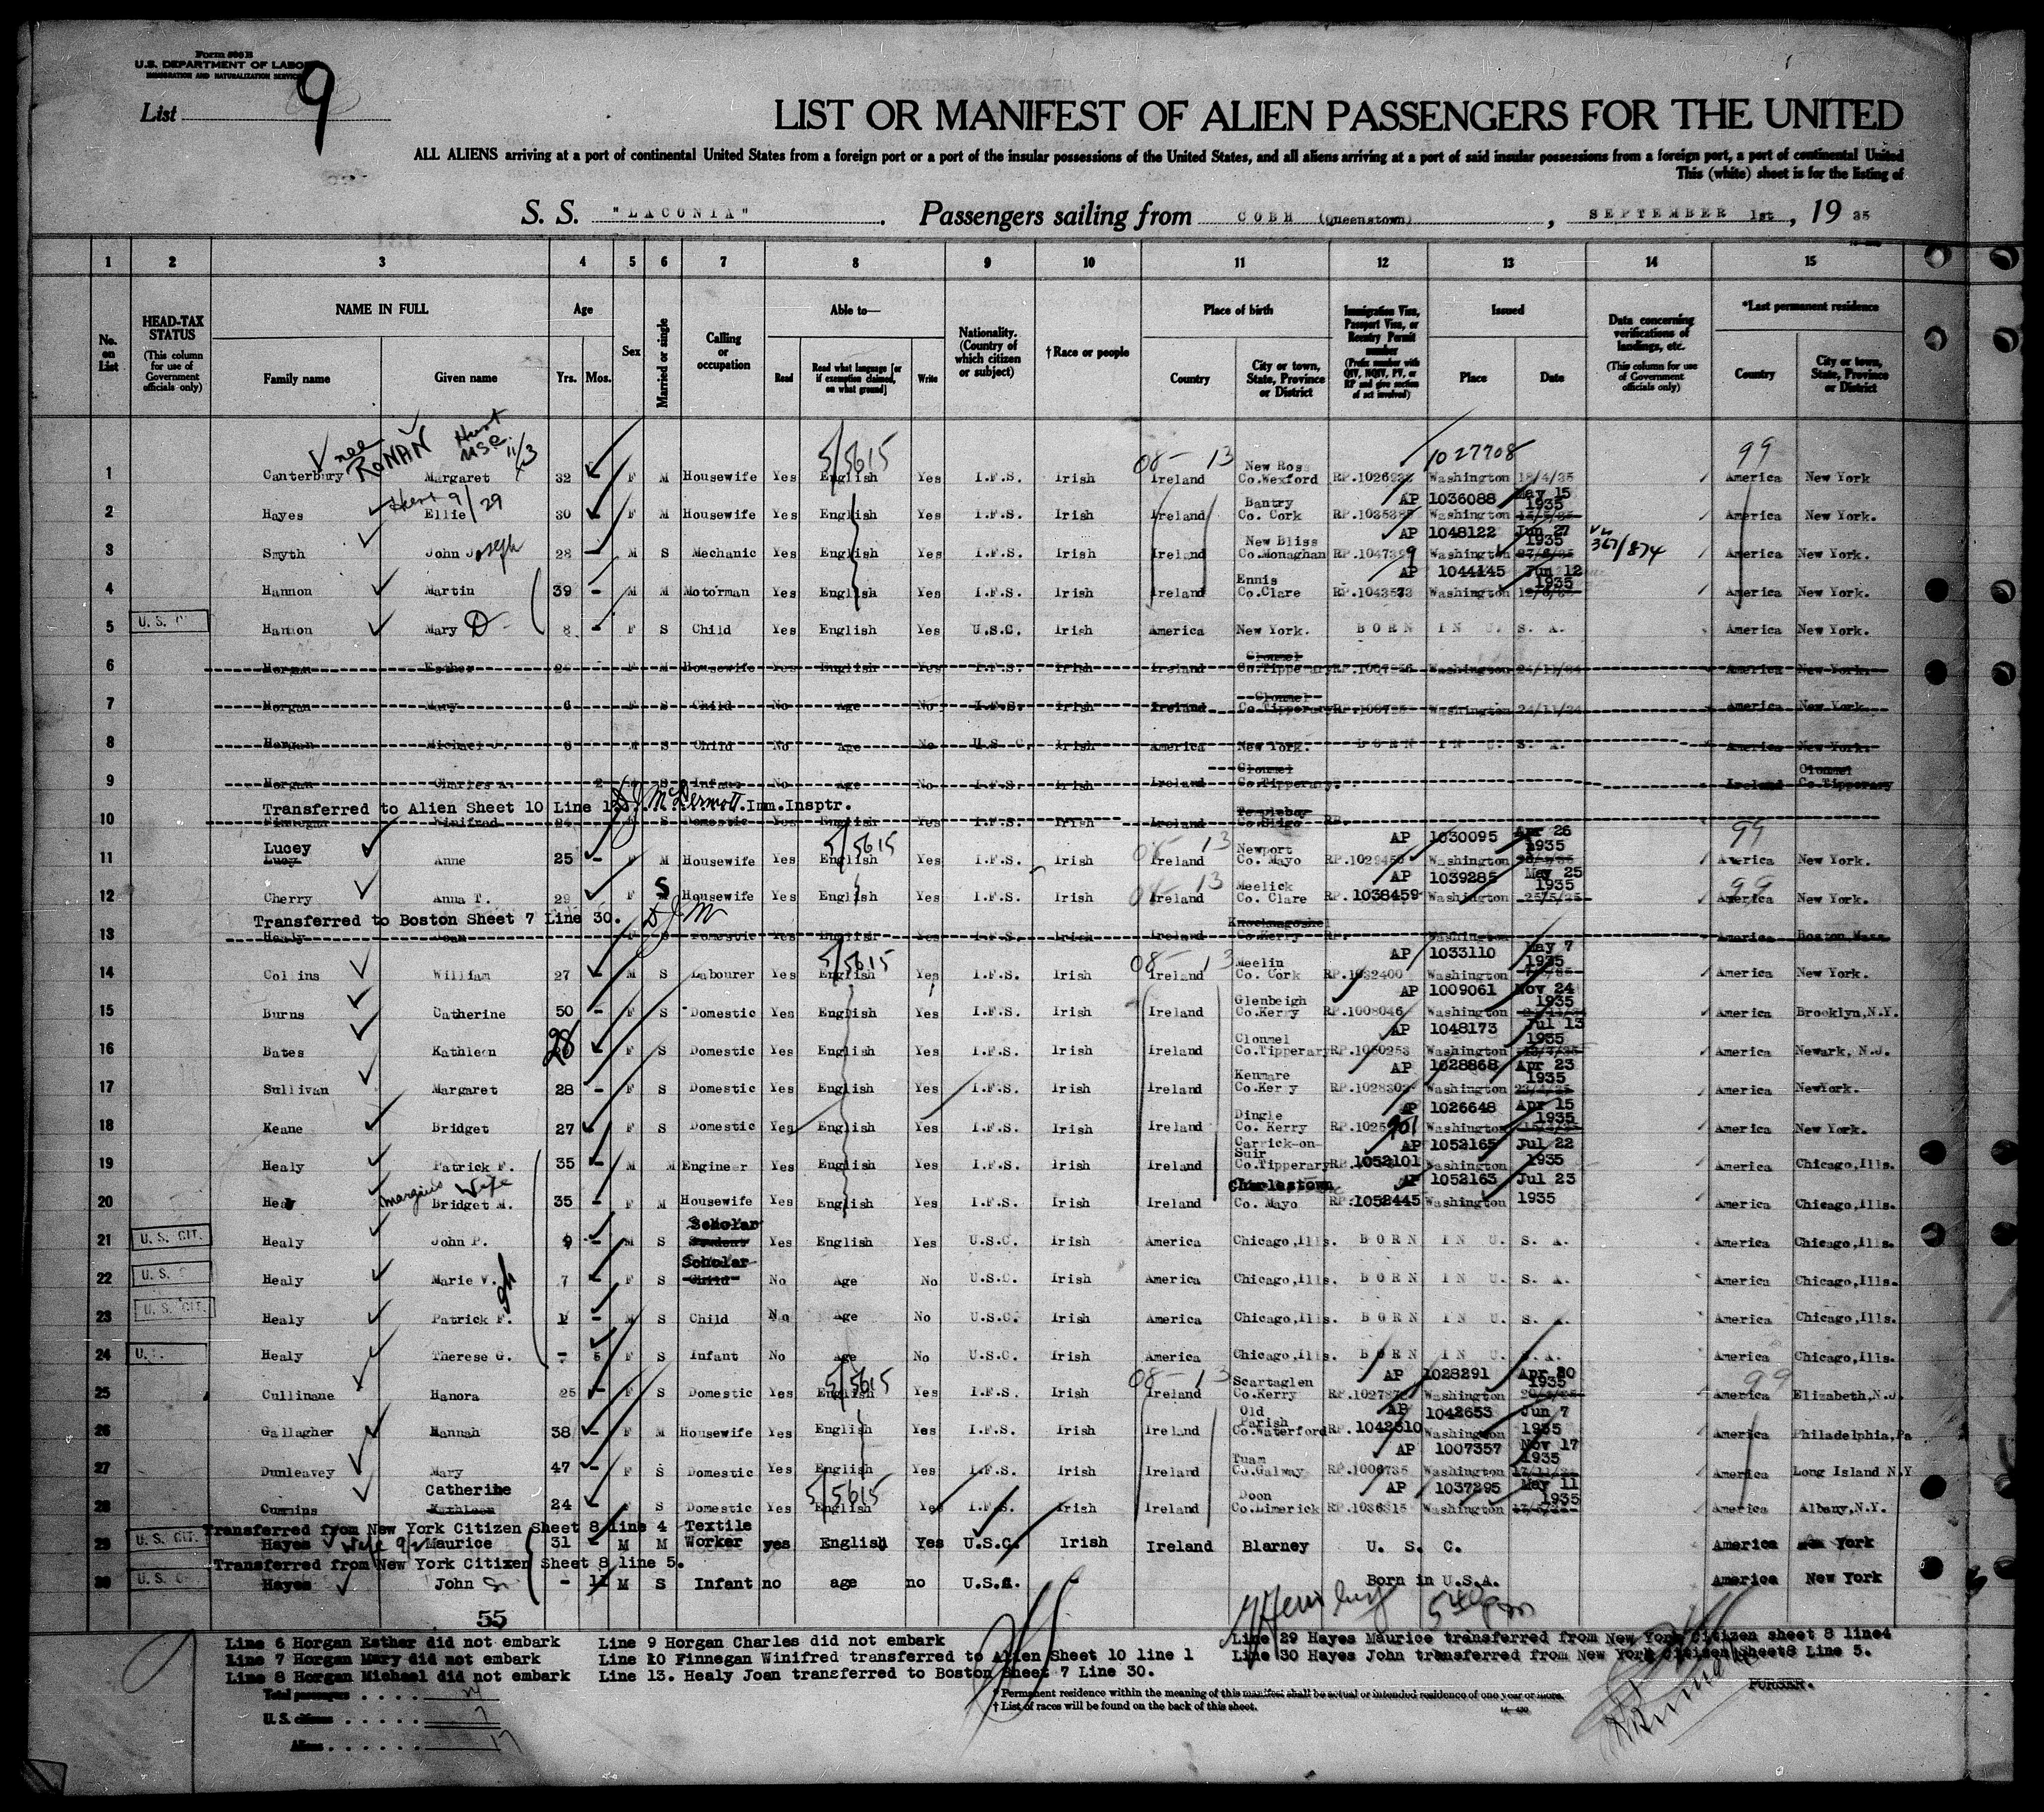 Form 500 B
U.S. DEPARTMENT OF LABOR
IMMIGRATION AND NATURALIZATION SERVICE
List 9
LIST OR MANIFEST OF ALIEN PASSENGERS FOR THE UNITED
ALL ALIENS arriving at a port of continental United States from a foreign port or a port of the insular possessions of the United States, and all aliens arriving at a port of said insular possessions from a foreign port, a port of continental United
This (white) sheet is for the listing of
S. S. "LACONIA" . Passengers sailing from COBH (Queenstown) , SEPTEMBER 1st , 19 35
1 2 3 4 5 6 7 8 9 10 11 12 13 14 15
No. on List
HEAD-TAX STATUS (This column for use of Government officials only)
NAME IN FULL
Family name Given name
Age
Yrs. Mos.
Sex
Married or single
Calling or occupation
Able to—
Read Read what language [or if exemption claimed, on what ground] Write
Nationality. (Country of which citizen or subject)
† Race or people
Place of birth
Country City or town, State, Province or District
Immigration Visa, Passport Visa, or Reentry Permit number (Prefix number with QIV, NQIV, PV, or RP and give section of act involved)
Issued
Place Date
Data concerning verifications of landings, etc. (This column for use of Government officials only)
*Last permanent residence
Country City or town, State, Province or District
nee RONAN 11/3 5/5615 08- 13 1027708 99
1 Canterbury Margaret 32 F M Housewife Yes English Yes I.F.S. Irish Ireland New Ross Co.Wexford Washington 18/4/35 America New York
9/29 AP 1036088 May 15 1935
2 Hayes Ellie 30 F M Housewife Yes English Yes I.F.S. Irish Ireland Bantry Co. Cork RP.1035385 Washington America New York.
AP 1048122 Jun 27 1935
3 Smyth John Joseph 28 M S Mechanic Yes English Yes I.F.S. Irish Ireland New Bliss Co.Monaghan Washington 367/874 America New York.
AP 1044145 Jun 12 1935
4 Hannon Martin 39 - M M Motorman Yes English Yes I.F.S. Irish Ireland Ennis Co.Clare RP.1043573 Washington America New York.
5 U. S. Hannon Mary D 8 - F S Child Yes English Yes U.S.C. Irish America New York. BORN IN U. S. A. America New York.
6 Horgan Esther F M Housewife Yes English Yes I.F.S. Irish Ireland Clonmel Co.Tipperary Washington 24/11/34 America New York.
7 Horgan Mary 6 F S Child No Age No I.F.S. Irish Ireland Clonmel Co.Tipperary Washington 24/11/34 America New York.
8 Horgan Michael J. M S Child No Age No U.S.C. Irish America New York. BORN IN U. S. A. America New York.
9 Horgan Charles A. 2 M S Infant No Age No I.F.S. Irish Ireland Clonmel Co.Tipperary. Ireland Clonmel Co.Tipperary
Transferred to Alien Sheet 10 Line 1 D.J. McDermott.Imm.Insptr.
10 Finnegan Winifred 24 F S Domestic Yes English Yes I.F.S. Irish Ireland Templeboy Co.Sligo RP.
Lucey 5/5615 08- 13 AP 1030095 Apr 26 1935 99
11 Lucy Anne 25 - F M Housewife Yes English Yes I.F.S. Irish Ireland Newport Co. Mayo RP.1029450 Washington America New York.
AP 1039285 May 25 1935 99
12 Cherry Anna T. 29 F S Housewife Yes English Yes I.F.S. Irish Ireland Meelick Co. Clare RP.1038459 Washington 25/5/35 America New York.
Transferred to Boston Sheet 7 Line 30. D J M
13 Healy Joan F S Domestic Yes English Yes I.F.S. Irish Ireland Knocknagoshel Co.Kerry RP. Washington America Boston,Mass.
5/5615 08- 13 AP 1033110 May 7 1935
14 Collins William 27 M S Labourer Yes English Yes I.F.S. Irish Ireland Meelin Co. Cork RP.1032400 Washington America New York.
AP 1009061 Nov 24 1935
15 Burns Catherine 50 - F S Domestic Yes English Yes I.F.S. Irish Ireland Glenbeigh Co.Kerry RP.1008046 Washington America Brooklyn,N.Y.
AP 1048173 Jul 13 1935
16 Bates Kathleen 28 F S Domestic Yes English Yes I.F.S. Irish Ireland Clonmel Co.Tipperary RP.1050253 Washington America Newark, N.J.
AP 1028868 Apr 23 1935
17 Sullivan Margaret 28 - F S Domestic Yes English Yes I.F.S. Irish Ireland Kenmare Co.Kerry RP.1028302 Washington America NewYork.
AP 1026648 Apr 15 1935
18 Keane Bridget 27 F S Domestic Yes English Yes I.F.S. Irish Ireland Dingle Co. Kerry Washington America New York.
AP 1052165 Jul 22 1935
19 Healy Patrick F. 35 - M M Engineer Yes English Yes I.F.S. Irish Ireland Carrick-on-Suir Co.Tipperary RP.1052101 Washington America Chicago,Ills.
Wife AP 1052163 Jul 23 1935
20 Healy Bridget M. 35 F M Housewife Yes English Yes I.F.S. Irish Ireland Charlestown Co. Mayo RP.1052445 Washington America Chicago,Ills.
21 U. S. CIT. Healy John P. 9 - M S Scholar Student Yes English Yes U.S.C. Irish America Chicago,Ills. BORN IN U. S. A. America Chicago,Ills.
22 U. S. Healy Marie V. 7 F S Scholar Child No Age No U.S.C. Irish America Chicago,Ills. BORN IN U. S. A. America Chicago,Ills.
23 U. S. CIT. Healy Patrick F. 1 - M S Child No Age No U.S.C. Irish America Chicago,Ills. BORN IN U. S. A. America Chicago,Ills.
24 U. Healy Therese G. - 5 F S Infant No Age No U.S.C. Irish America Chicago,Ills. BORN IN U. S. A. America Chicago,Ills.
5/5615 08- 13 AP 1028291 Apr 20 1935 99
25 Cullinane Hanora 25 - F S Domestic Yes English Yes I.F.S. Irish Ireland Scartaglen Co.Kerry Washington America Elizabeth,N.J.
AP 1042653 Jun 7 1935
26 Gallagher Hannah 38 - F M Housewife Yes English Yes I.F.S. Irish Ireland Old Parish Co.Waterford RP.1042310 Washington America Philadelphia,Pa
AP 1007357 Nov 17 1935
27 Dunleavey Mary 47 - F S Domestic Yes English Yes I.F.S. Irish Ireland Tuam Co.Galway RP.1006735 Washington America Long Island N.Y
Catherine 5/5615 AP 1037295 May 11 1935
28 Cummins Kathleen 24 F S Domestic Yes English Yes I.F.S. Irish Ireland Doon Co.Limerick Washington America Albany,N.Y.
Transferred from New York Citizen Sheet 8 line 4 Textile
29 U. S. CIT. Hayes Wife Maurice 31 M M Worker yes English Yes U.S.C. Irish Ireland Blarney U. S. C. America New York
Transferred from New York Citizen Sheet 8 line 5.
30 U. S. Hayes John - 11 M S Infant no age no U.S.C. - Born in U.S.A. America New York
55
Line 6 Horgan Esther did not embark Line 9 Horgan Charles did not embark Line 29 Hayes Maurice transferred from New York Citizen sheet 8 line4
Line 7 Horgan Mary did not embark Line 10 Finnegan Winifred transferred to Alien Sheet 10 line 1 Line 30 Hayes John transferred from New York Citizen Sheet8 Line 5.
Line 8 Horgan Michael did not embark Line 13. Healy Joan transferred to Boston Sheet 7 Line 30.
Total passengers . . . . 24
U.S. citizens . . . . . 7
Aliens . . . . . . 17
* Permanent residence within the meaning of this manifest shall be actual or intended residence of one year or more.
† List of races will be found on the back of this sheet.
PURSER.